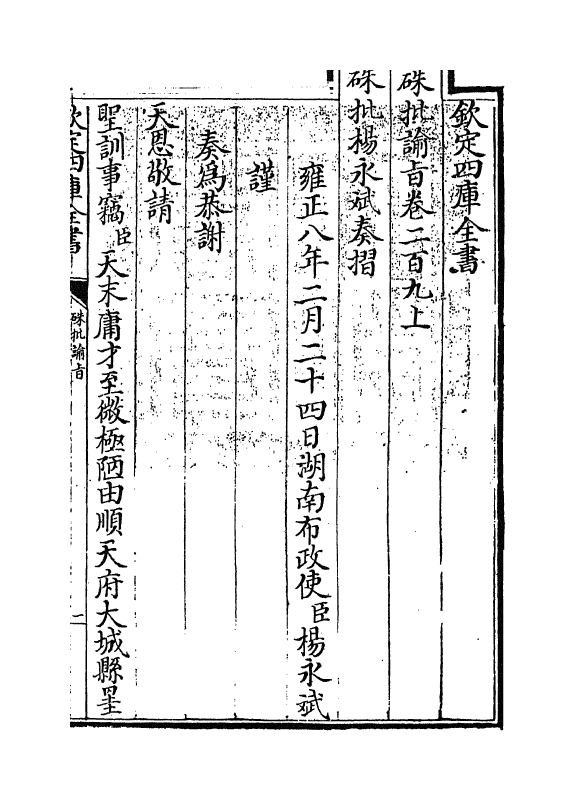 欽定四庫全書
硃批諭旨卷二百九上
硃批楊永斌奏摺
雍正八年二月二十四日湖南布政使臣楊永斌
謹
奏為恭謝
天恩敬請
聖訓事竊臣天末庸才至微極陋由順天府大城縣
欽定四庫全書
硃批諭旨